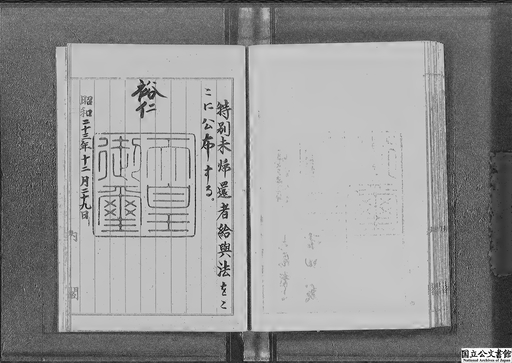 特別未帰還者給與法をこ
こに公布する。
裕仁
天皇
御璽
昭和二十三年十二月二十九日
内閣
国立公文書館
National Archives of Japan